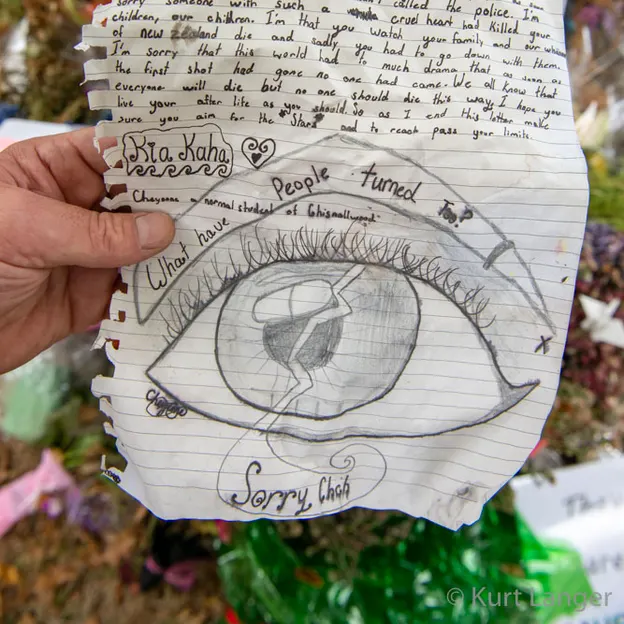 sorry someone with such a cruel heart had killed your
children, our children. I'm that you watch your family and our
of new zealand die and sadly you had to go down with them.
I'm sorry that this world had to much drama that as soon as
the first shot had gone no one had came. We all know that
everyone will die but no one should die this way. I hope you
live your after life as you should. So as I end this letter make
sure you aim for the stars and to reach pass your limits.
Kia Kaha
Cheyenne - normal student of Chisnallwood
What have People turned Too?
Sorry Chch
© Kurt Langer